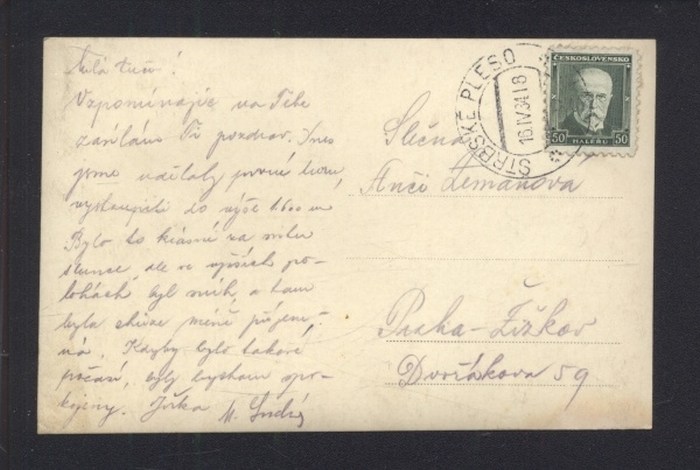 Milá Anči!
Vzpomínajíc na Tebe
zasílám Ti pozdrav. Dnes
jsme udělaly první túru,
vystoupili do výše 1600 m
Bylo to krásné za svitu
slunce, ale ve vyšších po-
lohách byl sníh, a tam
byla chůze méně příjem-
ná. Kdyby bylo takové
počasí, byly bychom spo-
kojeny. Jožka
ŠTRBSKÉ PLESO
16.IV.34 18
ČESKOSLOVENSKO
50 HALÉŘŮ 50
Slečna
Anči Zemanová
Praha-Žižkov
Dvořákova 59